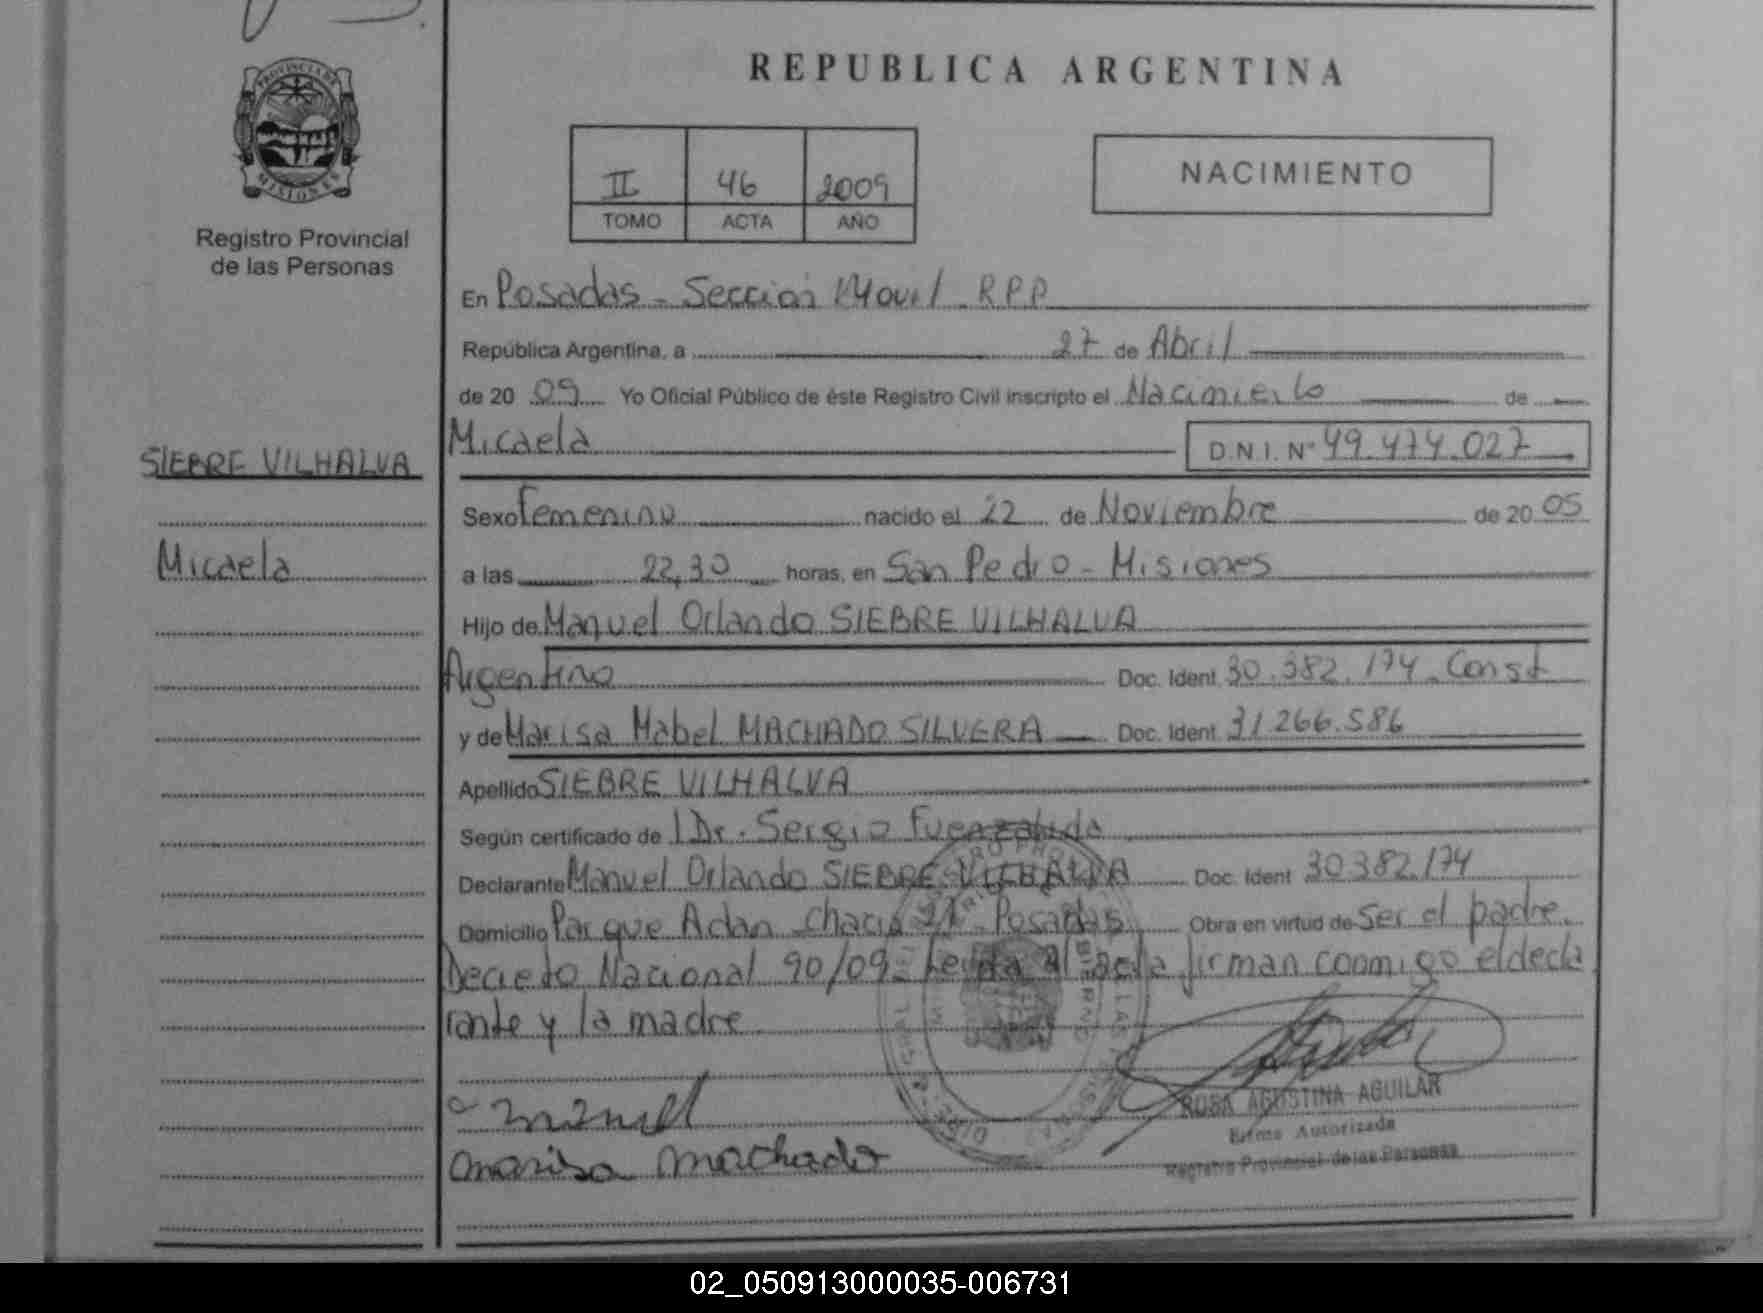 REPUBLICA ARGENTINA
PROVINCIA DE
MISIONES
Registro Provincial
de las Personas
II 46 2009
TOMO ACTA AÑO
NACIMIENTO
En Posadas - Seccion Movil - R.P.P
República Argentina, a 27 de Abril
de 20 09 Yo Oficial Público de éste Registro Civil inscripto el Nacimiento de
Micaela D.N.I. Nº 49.474.027
SIEBRE VILHALVA
Micaela
Sexo Femenino nacido el 22 de Noviembre de 20 05
a las 22,30 horas, en San Pedro - Misiones
Hijo de Manuel Orlando SIEBRE VILHALVA
Argentino Doc. Ident. 30.382.174 - Const
y de Marisa Mabel MACHADO SILVERA Doc. Ident. 31.266.586
Apellido SIEBRE VILHALVA
Según certificado de Dr. Sergio Fuenzalida
Declarante Manuel Orlando SIEBRE VILHALVA Doc. Ident 30.382.174
Domicilio Parque Adan Chacra Posadas Obra en virtud de Ser el padre.
Decreto Nacional 90/09 - Leida el acta firman conmigo el decla
rante y la madre
manuel
marisa machado
ROSA AGUSTINA AGUILAR
Firma Autorizada
Registro Provincial de las Personas
02_050913000035-006731